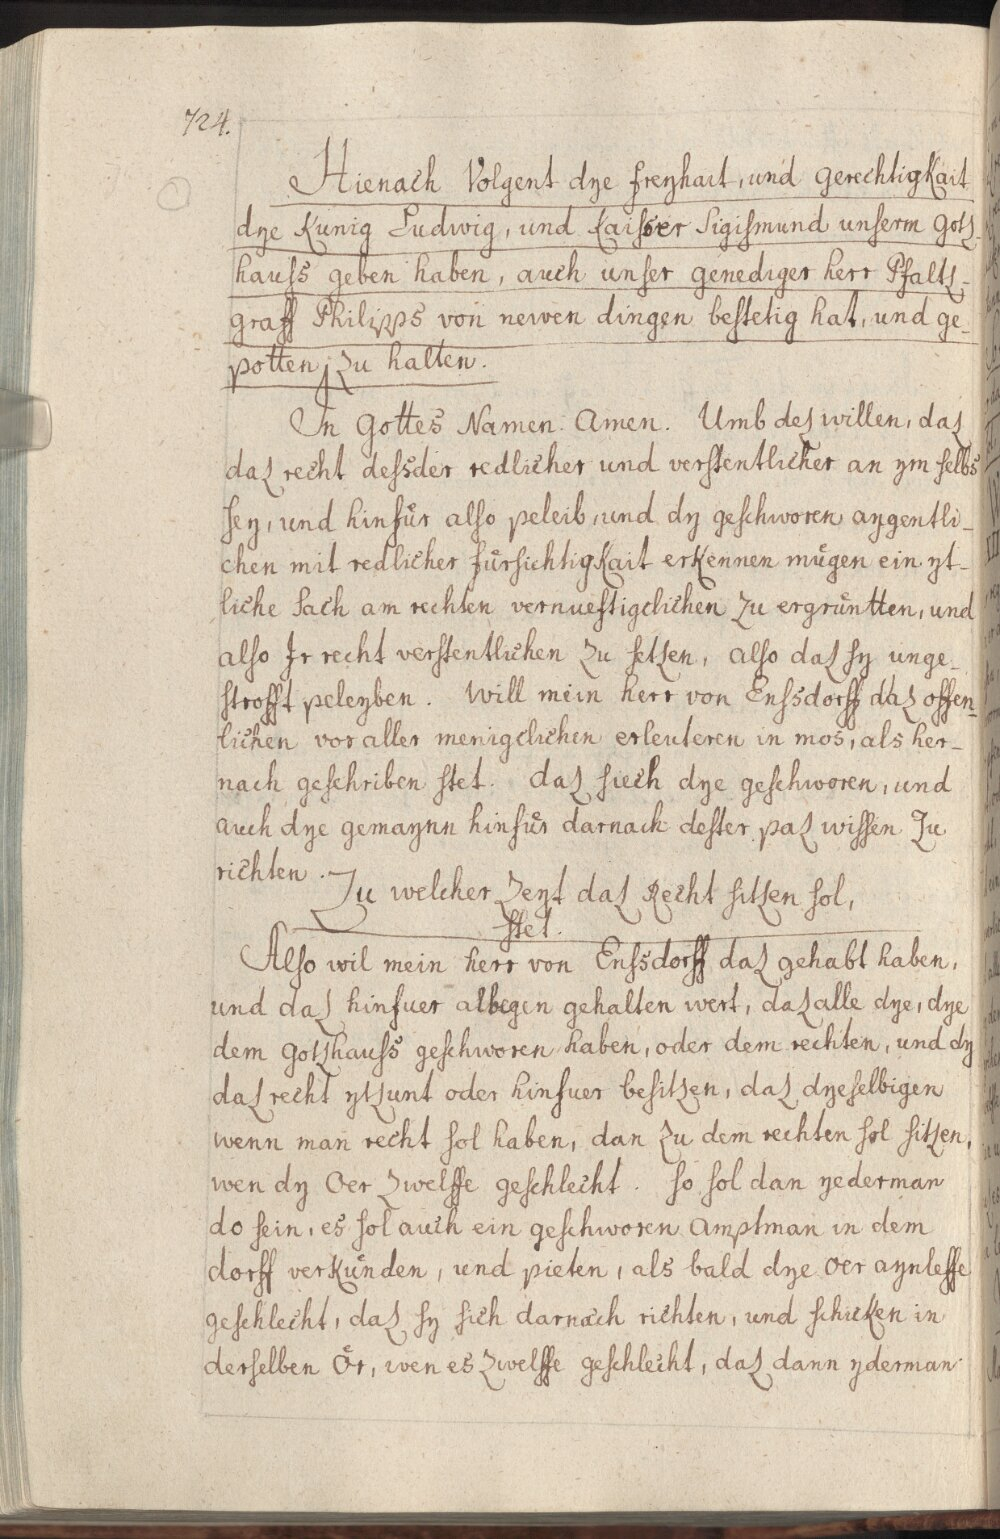 724.
Hienach Volgent dye freyhait, und gerechtigkait
dye Kunig Ludwig, und kaisser Sigismund unserm Gotz-
hauss geben haben, auch unser genediger herr Pfaltz-
graff Philipps von newen dingen bestetig hat, und ge-
potten zu halten.
In Gottes Namen. Amen. Umb dez willen, daz
daz recht dessder redlicher und verstentlicher an ym selbs
sey, und hinfür also peleib, und dy geschworen aygentli-
chen mit redlicher fürsichtigkait erkennen mügen ein yt-
liche sach am rechten vernueftigclichen zu ergrüntten, und
also Ir recht verstentlichen zu setzen, also daz sy unge-
strofft peleyben. Will mein herr von Enssdorff daz offen-
lichen vor aller menigclichen erleuteren in mos, als her-
nach geschriben stet. daz siech dye geschworen, und
auch dye gemaynn hinfür darnach dester paz wissen zu
richten.
Zu welcher Zeyt daz Recht sitzen sol,
stet.
Also wil mein herr von Enssdorff daz gehabt haben,
und daz hinfuer albegen gehalten wert, daz alle dye, dye
dem Gotzhauss geschworen haben, oder dem rechten, und dy
daz recht ytzunt oder hinfuer besitzen, daz dyeselbigen
wenn man recht sol haben, dan zu dem rechten sol sitzen,
wen dy Oer zwelffe geschlecht. so sol dan yederman
do sein, es sol auch ein geschworen Amptman in dem
dorff verkünden, und pieten, als bald dye Oer aynleffe
geschlecht, daz sy sich darnach richten, und schicken in
derselben Ör, wen es zwelffe geschlecht, daz dann yderman